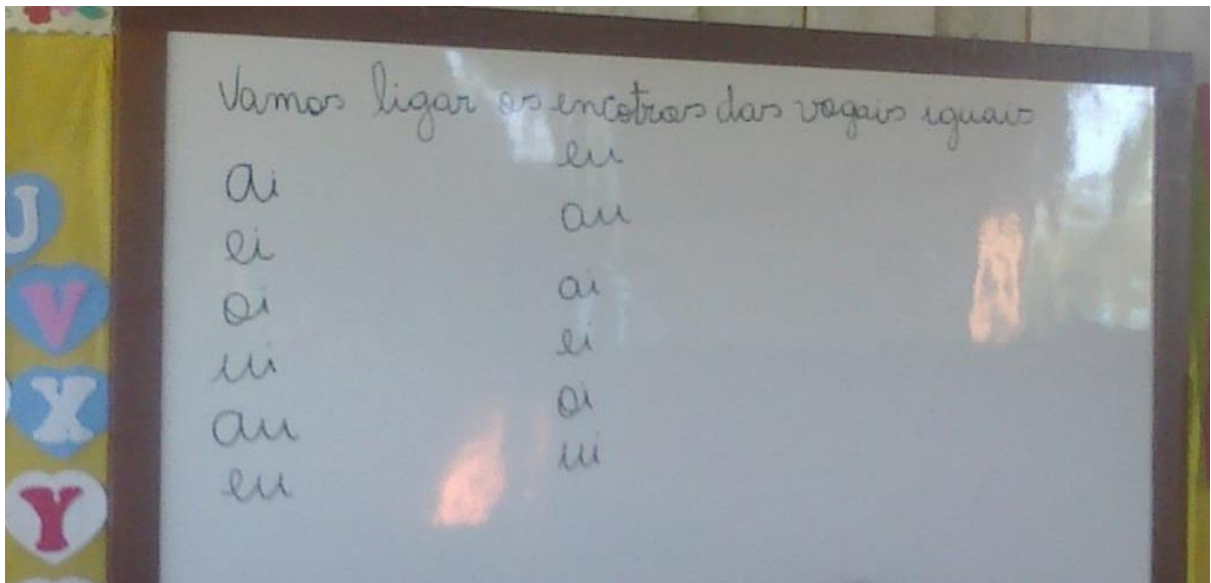 Vamos ligar os encotros das vogais iguais
ai
ei
oi
ui
au
eu
eu
au
ai
ei
oi
ui
U
V
X
Y